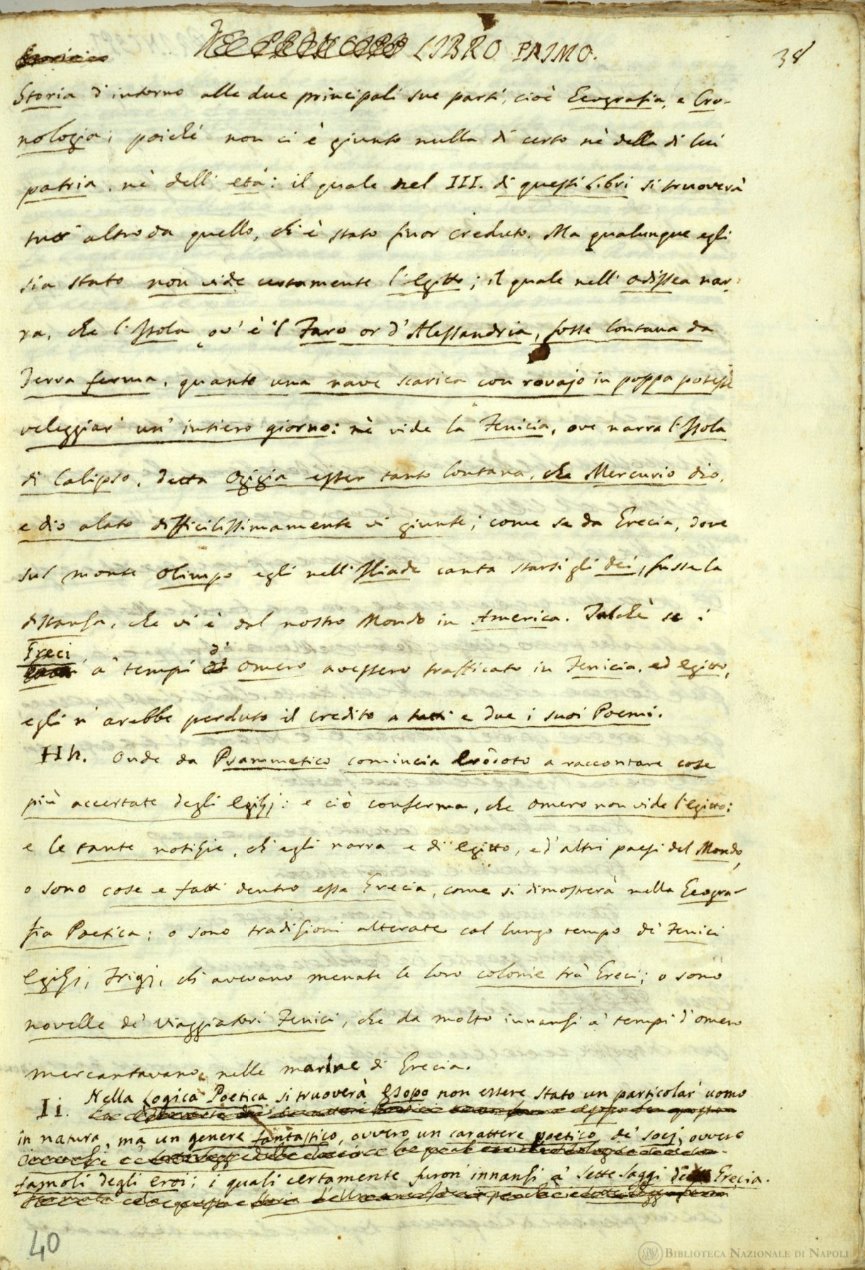 LIBRO PRIMO. 38
Storia d'intorno alle due principali sue parti, cioè Geografia, e Cro-
nologia; poichè non ci è giunto nulla di certo nè della di lui
patria, nè dell'età: il quale nel III. di questi Libri si truoverà
tutt'altro da quello, ch'è stato finor creduto. Ma qualunque egli
sia stato non vide certamente l'Egitto; il quale nell'Odissea nar-
ra, che l'Isola ov'è 'l Faro or d'Alessandria, fosse lontana da
Terra ferma, quanto una nave scarica con rovajo in poppa potesse
veleggiar' un' intiero giorno: nè vide la Fenicia, ove narra l'Isola
di Calipso, detta Ogigia esser tanto lontana, che Mercurio dio,
e dio alato difficilissimamente vi giunse; come se da Grecia, dove
sul monte Olimpo egli nell'Iliade canta starsi gli dei, fusse la
distanza, che vi è dal nostro Mondo in America. Talchè se i
Greci a' tempi di Omero avessero trafficato in Fenicia, ed Egitto,
egli n'arebbe perduto il credito a tutti e due i suoi Poemi.
Hh. Onde da Psammetico comincia Erodoto a raccontare cose
più accertate degli Egizj: e ciò conferma, che Omero non vide l'Egitto:
e le tante notizie, ch'egli narra e di Egitto, e d'altri paesi del Mondo,
o sono cose e fatti dentro essa Grecia, come si dimostrerà nella Geogra-
fia Poetica; o sono tradizioni alterate col lungo tempo de' Fenici
Egizj, Frigj, ch'avevano menate le loro colonie trà Greci; o sono
novelle de' viaggiatori Fenici, che da molto innanzi a' tempi d'Omero
mercantavano nelle marine di Grecia.
Ii. Nella Logica Poetica si truoverà Esopo non essere stato un particolar' uomo
in natura, ma un genere fantastico, ovvero un carattere poetico de' socj, ovvero
famoli degli eroi; i quali certamente furon' innanzi a' Sette Saggi di Grecia.
40
BIBLIOTECA NAZIONALE DI NAPOLI